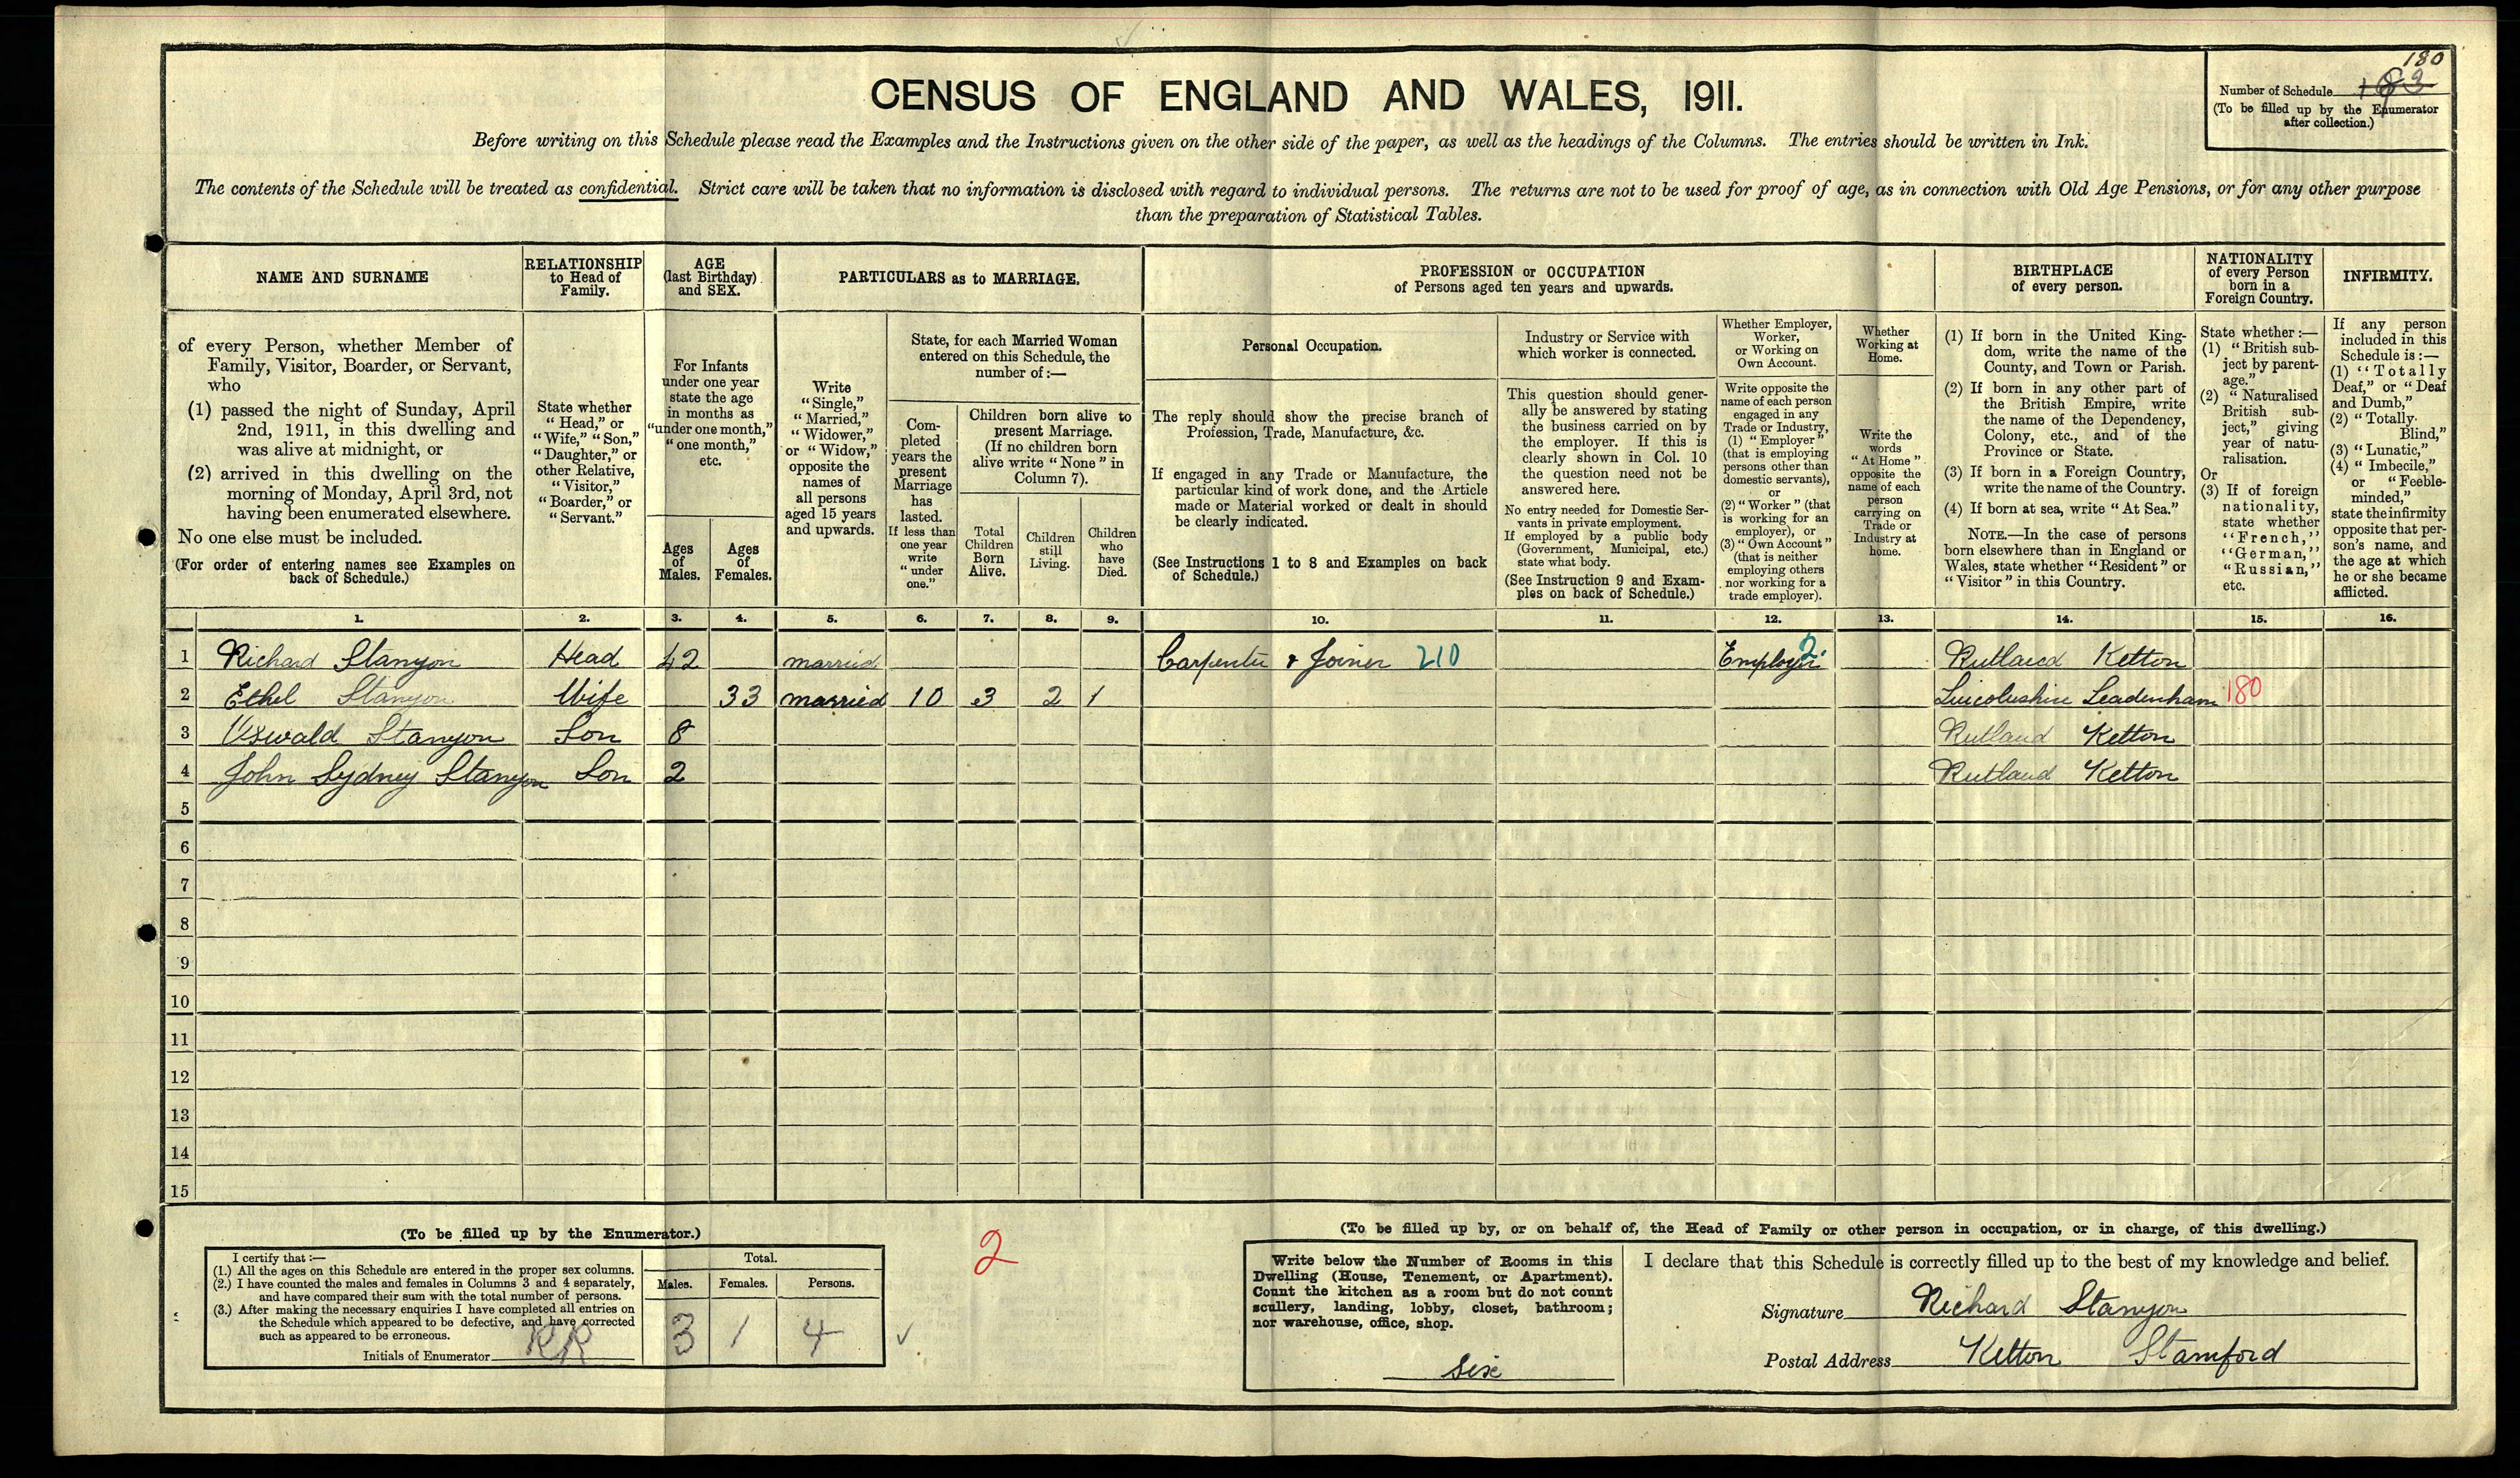 180
CENSUS OF ENGLAND AND WALES, 1911.
Number of Schedule
(To be filled up by the Enumerator
after collection.)
Before writing on this Schedule please read the Examples and the Instructions given on the other side of the paper, as well as the headings of the Columns. The entries should be written in Ink.
The contents of the Schedule will be treated as confidential. Strict care will be taken that no information is disclosed with regard to individual persons. The returns are not to be used for proof of age, as in connection with Old Age Pensions, or for any other purpose
than the preparation of Statistical Tables.
NAME AND SURNAME
of every Person, whether Member of
Family, Visitor, Boarder, or Servant,
who
(1) passed the night of Sunday, April
2nd, 1911, in this dwelling and
was alive at midnight, or
(2) arrived in this dwelling on the
morning of Monday, April 3rd, not
having been enumerated elsewhere.
No one else must be included.
(For order of entering names see Examples on
back of Schedule.)
RELATIONSHIP
to Head of
Family.
State whether
"Head," or
"Wife," "Son,"
"Daughter," or
other Relative,
"Visitor,"
"Boarder," or
"Servant."
AGE
(last Birthday)
and SEX.
For Infants
under one year
state the age
in months as
"under one month,"
"one month,"
etc.
Ages
of
Males.
Ages
of
Females.
PARTICULARS as to MARRIAGE.
Write
"Single,"
"Married,"
"Widower,"
or "Widow,"
opposite the
names of
all persons
aged 15 years
and upwards.
State, for each Married Woman
entered on this Schedule, the
number of:—
Com-
pleted
years the
present
Marriage
has
lasted.
If less than
one year
write
"under
one."
Children born alive to
present Marriage.
(If no children born
alive write "None" in
Column 7).
Total
Children
Born
Alive.
Children
still
Living.
Children
who
have
Died.
PROFESSION or OCCUPATION
of Persons aged ten years and upwards.
Personal Occupation.
The reply should show the precise branch of
Profession, Trade, Manufacture, &c.
If engaged in any Trade or Manufacture, the
particular kind of work done, and the Article
made or Material worked or dealt in should
be clearly indicated.
(See Instructions 1 to 8 and Examples on back
of Schedule.)
Industry or Service with
which worker is connected.
This question should gener-
ally be answered by stating
the business carried on by
the employer. If this is
clearly shown in Col. 10
the question need not be
answered here.
No entry needed for Domestic Ser-
vants in private employment.
If employed by a public body
(Government, Municipal, etc.)
state what body.
(See Instruction 9 and Exam-
ples on back of Schedule.)
Whether Employer,
Worker,
or Working on
Own Account.
Write opposite the
name of each person
engaged in any
Trade or Industry,
(1) "Employer"
(that is employing
persons other than
domestic servants),
or
(2) "Worker" (that
is working for an
employer), or
(3) "Own Account"
(that is neither
employing others
nor working for a
trade employer).
Whether
Working at
Home.
Write the
words
"At Home"
opposite the
name of each
person
carrying on
Trade or
Industry at
home.
BIRTHPLACE
of every person.
(1) If born in the United King-
dom, write the name of the
County, and Town or Parish.
(2) If born in any other part of
the British Empire, write
the name of the Dependency,
Colony, etc., and of the
Province or State.
(3) If born in a Foreign Country,
write the name of the Country.
(4) If born at sea, write "At Sea."
NOTE.—In the case of persons
born elsewhere than in England or
Wales, state whether "Resident" or
"Visitor" in this Country.
NATIONALITY
of every Person
born in a
Foreign Country.
State whether:—
(1) "British sub-
ject by parent-
age."
(2) "Naturalised
British sub-
ject," giving
year of natu-
ralisation.
Or
(3) If of foreign
nationality,
state whether
"French,"
"German,"
"Russian,"
etc.
INFIRMITY.
If any person
included in this
Schedule is:—
(1) "Totally
Deaf," or "Deaf
and Dumb,"
(2) "Totally
Blind,"
(3) "Lunatic,"
(4) "Imbecile,"
or "Feeble-
minded,"
state the infirmity
opposite that per-
son's name, and
the age at which
he or she became
afflicted.
1. 2. 3. 4. 5. 6. 7. 8. 9. 10. 11. 12. 13. 14. 15. 16.
1 Richard Stanyon Head 42 married Carpenter & Joiner 210 Employer 2. Rutland Ketton
2 Ethel Stanyon Wife 33 married 10 3 2 1 Lincolnshire Leadenham 180
3 Oswald Stanyon Son 8 Rutland Ketton
4 John Sydney Stanyon Son 2 Rutland Ketton
5
6
7
8
9
10
11
12
13
14
15
(To be filled up by the Enumerator.)
I certify that:—
(1.) All the ages on this Schedule are entered in the proper sex columns.
(2.) I have counted the males and females in Columns 3 and 4 separately,
and have compared their sum with the total number of persons.
(3.) After making the necessary enquiries I have completed all entries on
the Schedule which appeared to be defective, and have corrected
such as appeared to be erroneous.
Initials of Enumerator RR
Total.
Males. Females. Persons.
3 1 4
2
(To be filled up by, or on behalf of, the Head of Family or other person in occupation, or in charge, of this dwelling.)
Write below the Number of Rooms in this
Dwelling (House, Tenement, or Apartment).
Count the kitchen as a room but do not count
scullery, landing, lobby, closet, bathroom;
nor warehouse, office, shop.
Six
I declare that this Schedule is correctly filled up to the best of my knowledge and belief.
Signature Richard Stanyon
Postal Address Ketton Stamford